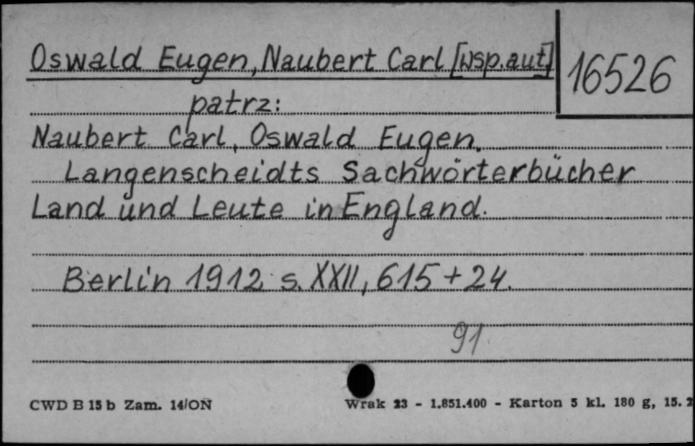 Oswald Eugen, Naubert Carl [wsp.aut]
16526
patrz:
Naubert Carl, Oswald Eugen.
Langenscheidts Sachwörterbücher
Land und Leute in England.
Berlin 1912 s. XXII, 615 + 24.
91
CWD B 15 b Zam. 14/ON
Wrak 23 - 1.851.400 - Karton 5 kl. 180 g, 15. 2